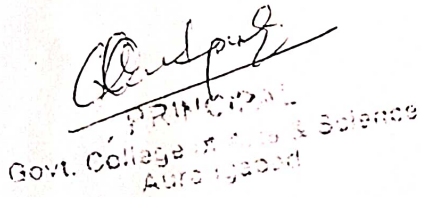 PRINCIPAL
Govt. College of Arts & Science
Aurangabad